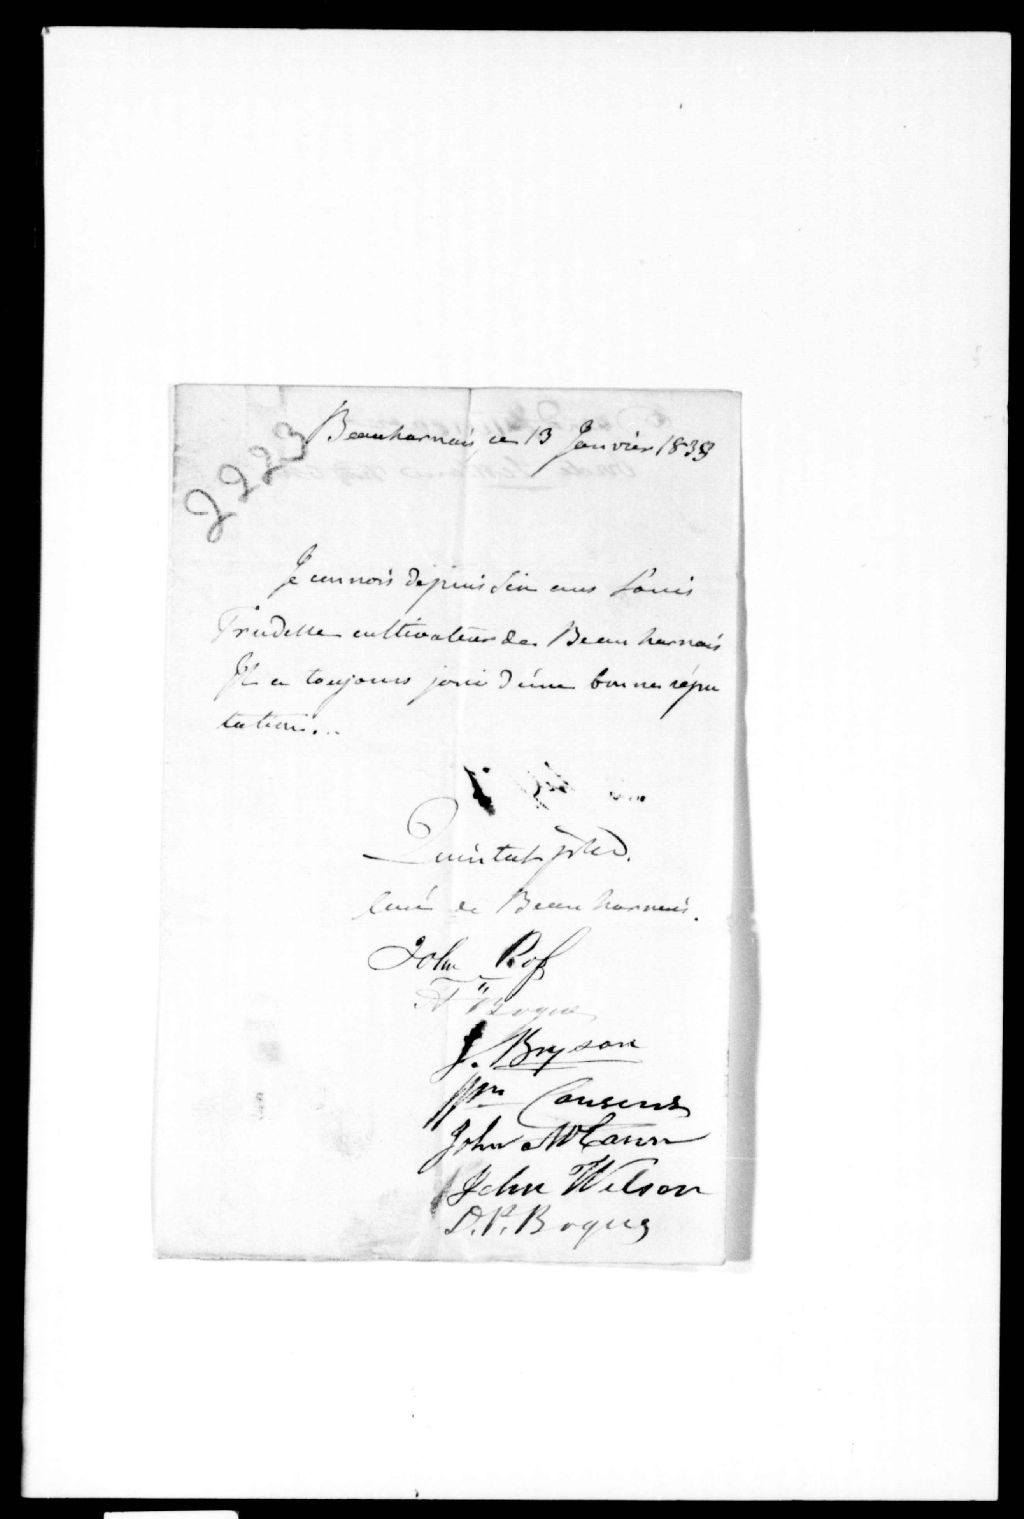 2223
Beauharnois, ce 13 Janvier 1839
Je connois depuis six ans Louis
Trudelle cultivateur de Beauharnois
Il a toujours joui d'une bonne répu
tation...
Quintal ptre.
Curé de Beauharnois.
John Ross
Bogue
J. Bryson
Wm Cousens
John McCann
John Wilson
D. P. Bogue